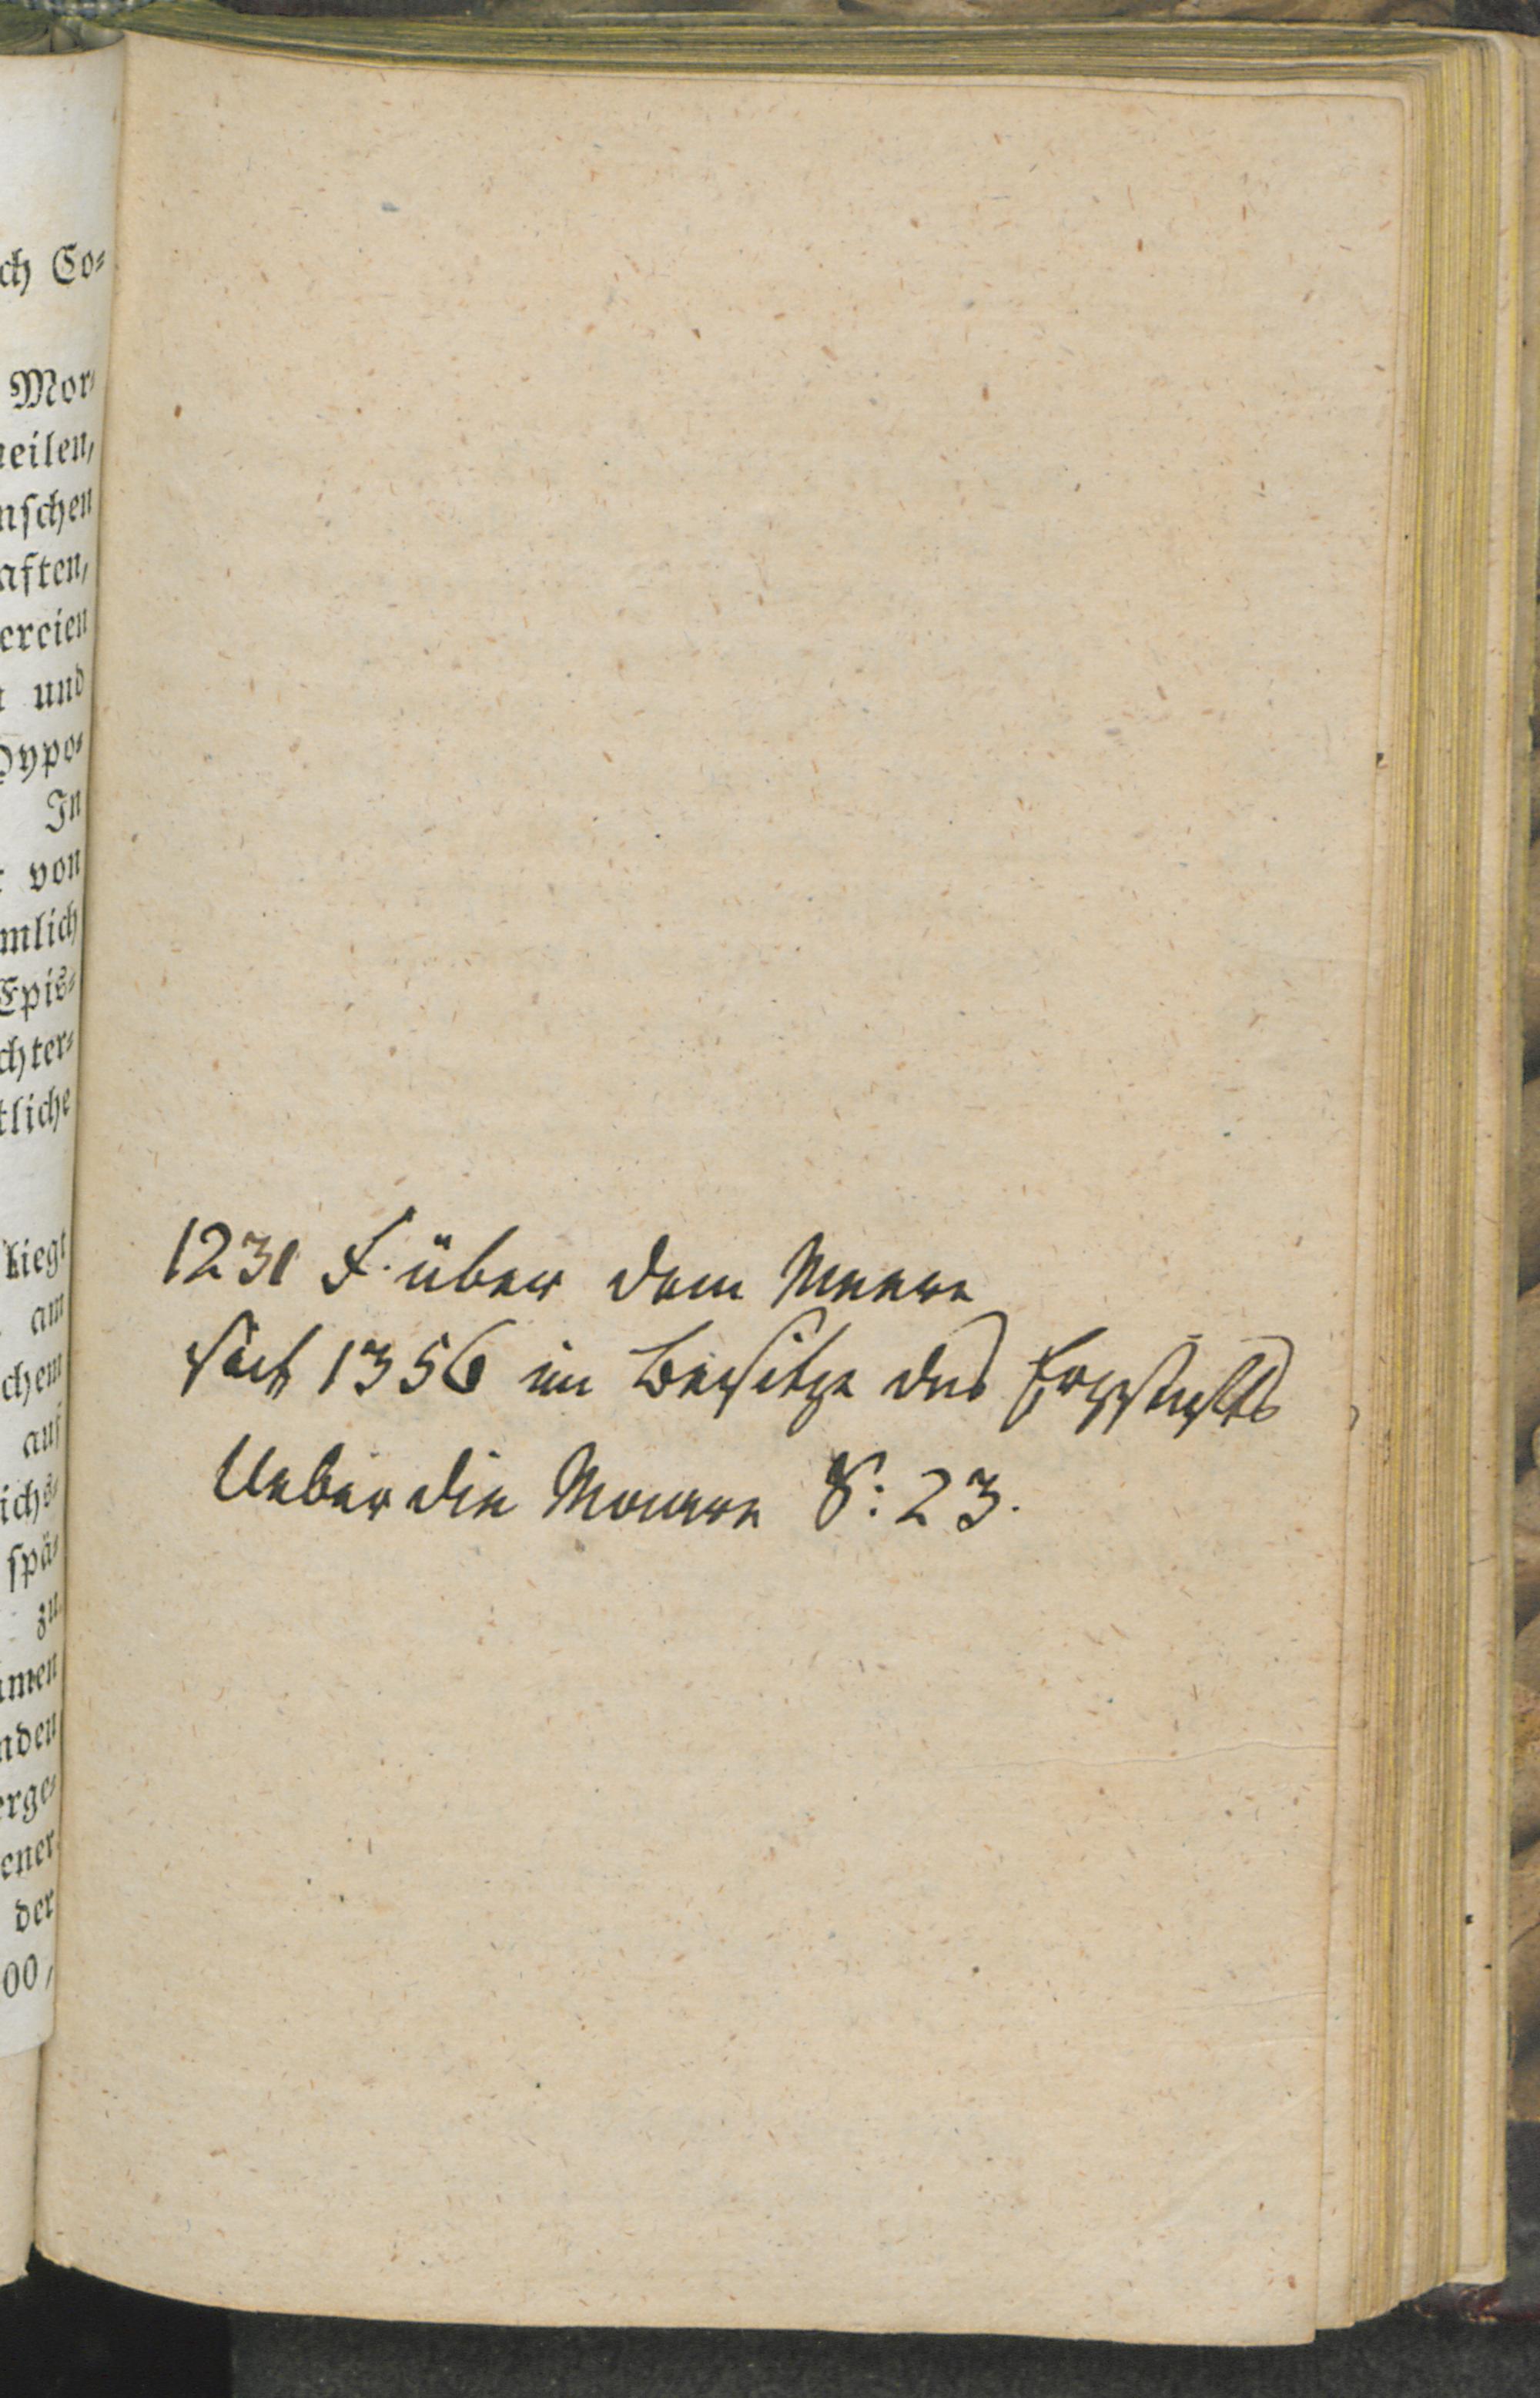 ch Co-
Mor-
eilen,
nschen
aften,
ereien
und
Hypo-
In
von
mlich
Epis-
chter-
tliche
liegt
am
chem
auf
ichs-
spä-
zu
men
nden
erge-
ener
der
00,
1231 F. über dem Meere
Seit 1356 im Besitze des Erzstifts
Ueber die Mauern S: 23.